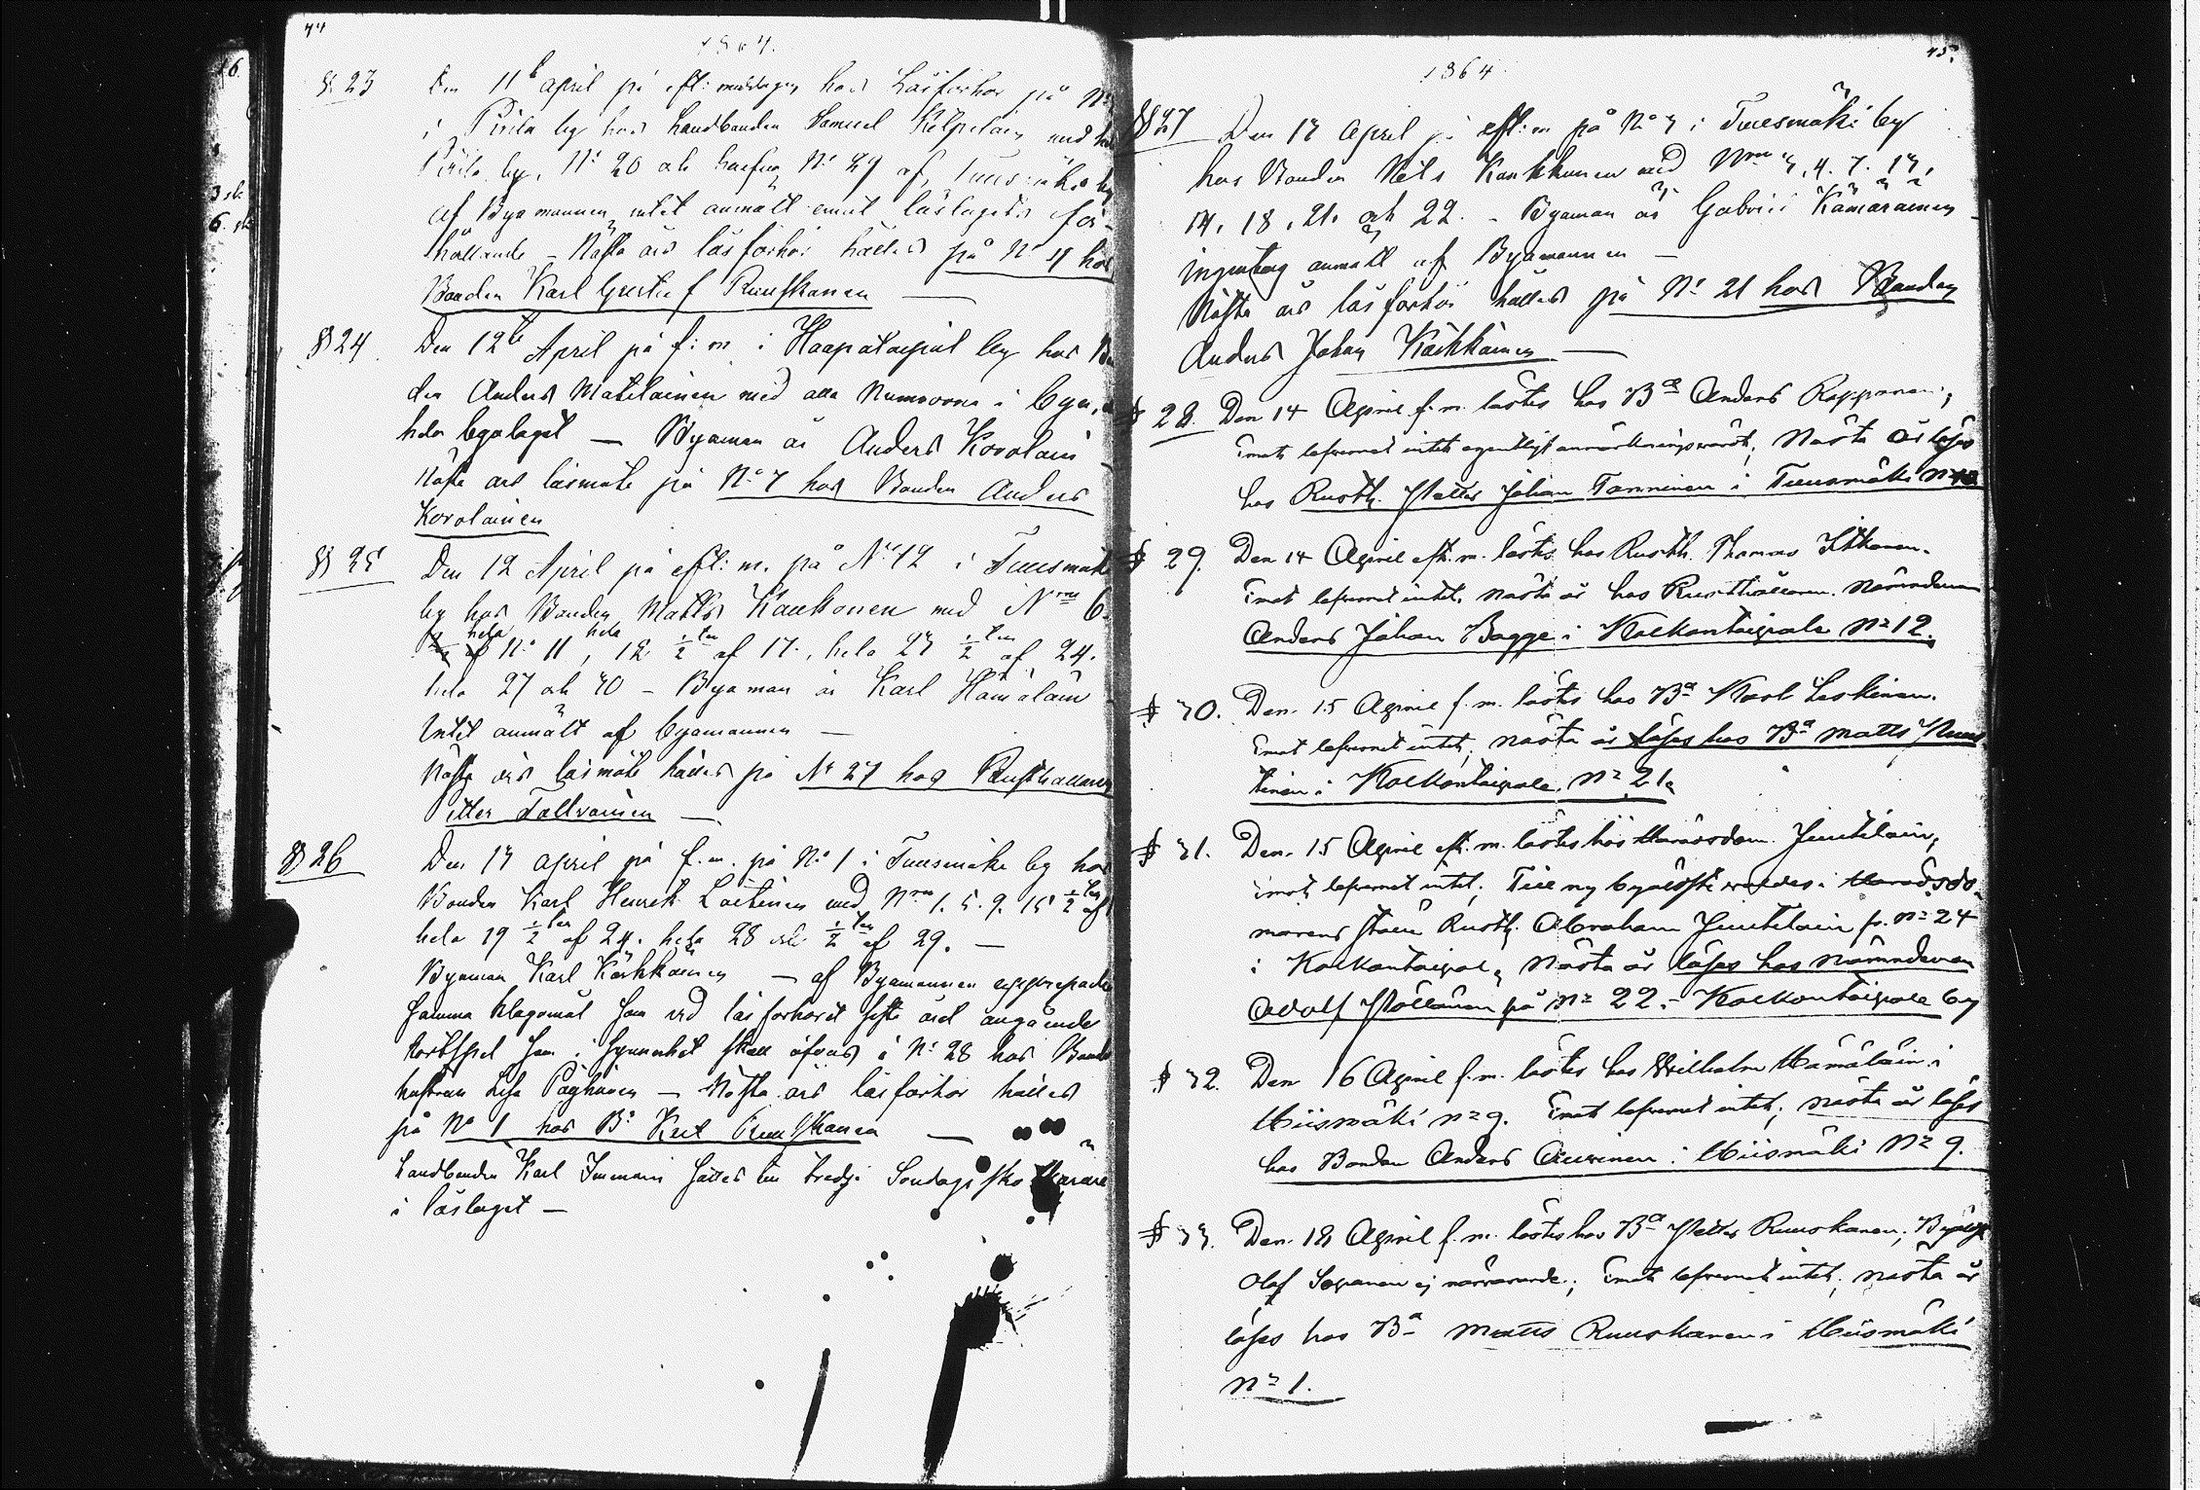 44
1864.
§ 23 Den 11 april på eft: middagen hos Läsförhör på N:
i Pirila by hos Landbonden Samuel Kilpeläin med
Pirila by, N: 20 och N: 29 af Tuusmäki by
af Byamannen intet anmält emot läslagets för-
hållande – Nästa års läsförhör hålles på N: 4 hos
Bonden Karl Gustaf Ruuskanen —
§ 24 Den 12 April på f: m i Haapataipal by hos Bon
den Anders Matilainen med alla Numrorna i byn,
hela byalaget — Byaman är Anders Korolain
Nästa års läsmöte på N:o 7 hos Bonden Anders
Korolainen
§ 25 Den 12 April på eft: m. på N: 12 i Tuusmäki
by hos Bonden Matts Kaukonen med N:ro 6.
hela N:o 11, hela 12 ½ten af 17., hela 23 ½ten af 24.
hela 27 och 30 – Byaman är Karl Hämäläin
Intet anmält af byamannen —
Nästa års läsmöte hålles på N: 27 hos Rusthållaren
Petter Tallvainen —
§ 26 Den 13 april på f. m. på N:o 1 i Tuusmäki by hos
Bonden Karl Henrik Laitinen med N:ro 1. 5. 9. 15 ½ten af
hela 19 ½ten af 24. hela 28 och ½ten af 29. —
Byaman Karl Kärkkäinen — af Byamannen
samma klagomål som vid läsförhöret sista året angående
kortspel som i synnerhet skall öfvas i N: 28 hos Bonde
hustrun Lisa Päyhönen — Nästa års läsförhör hålles
på N:o 1 hos B: Karl Ruuskanen —
Landbonden Karl Immonen sattes till tredje Söndagsskolärare
i läslaget —
45.
1864
§ 27 Den 13 April på eft: m på N:o 3 i Tuusmäki by
hos Bonden Nils Kankkunen med N:ro 3, 4. 7. 13,
14. 18. 21. och 22. – Byaman är Gabriel Kämäräinen –
ingenting anmält af Byamannen —
Nästa års läsförhör hålles på N: 21 hos Bonden
Anders Johan Kärkkäinen —
§ 28. Den 14 April f. m. lästes hos B:de Anders Rapponen;
Emot lefvernet intet egentligt anmärkningsvärdt; Nästa år läses
hos Rusth. Petter Johan Tanninen i Tuusmäki N:
§ 29. Den 14 April eft. m. lästes hos Rusth. Thomas Ikkonen.
Emot lefvernet intet. Nästa år hos Rusthållaren Nämndeman
Anders Johan Bagge i Kolkontaipale N:o 12.
§ 30. Den 15 April f. m. lästes hos B:de Karl Laskinen.
Emot lefvernet intet; nästa år läses hos B:de Matts
tinen i Kolkontaipale N:o 21.
§ 31. Den 15 April eft. m. lästes hos Häradsdom. Juutilain,
Emot lefvernet intet; Till ny byaålderste valdes i Häradsdo-
marens ställe Rusth. Abraham Juutilain fr. N:o 24
i Kolkontaipal, Nästa år läses hos nämndeman
Adolf Pöllänen på N:o 22. – Kolkontaipale by
§ 32. Den 16 April f. m. lästes hos Wilhelm Hämäläin i
Hiismäki N:o 9. Emot lefvernet intet; nästa år läses
hos Bonden Anders Auvinen i Hiismäki N:o 9.
§ 33. Den 18 April f. m. lästes hos B:de Petter Ruuskanen; Byåld
Olof Sapanen ej närvarande; Emot lefvernet intet; nästa år
läses hos B:de Matts Ruuskanen i Hiismäki
N:o 1.